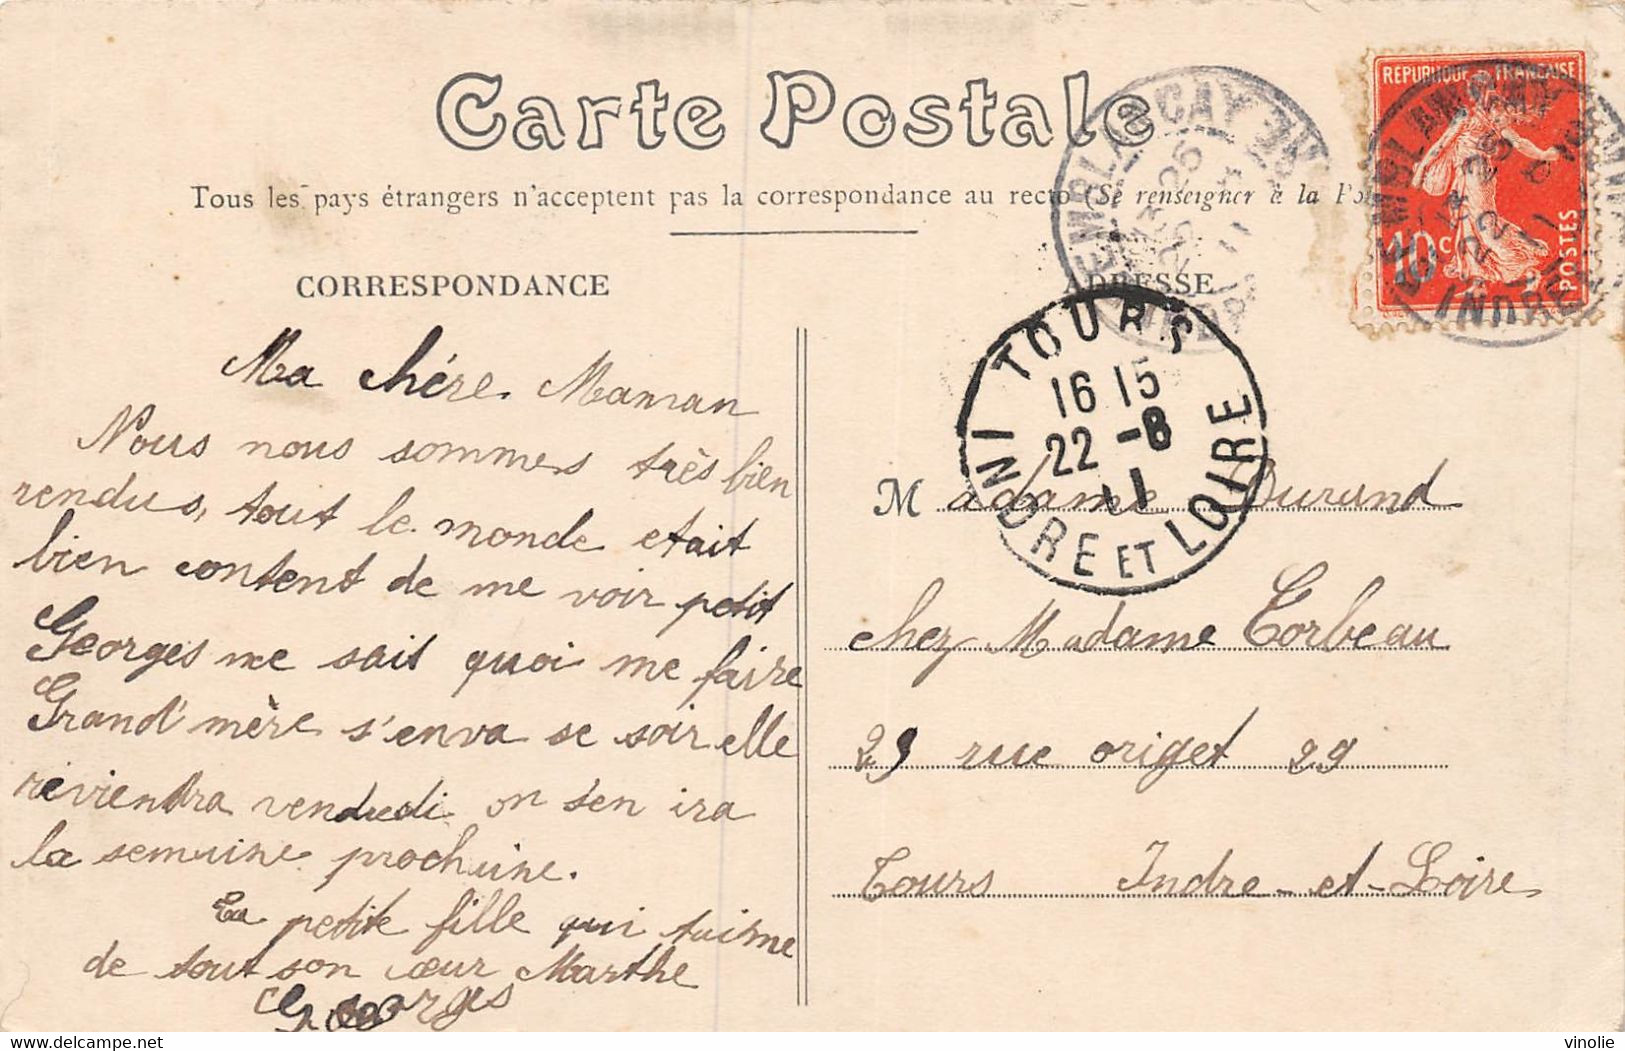 Carte Postale
Tous les pays étrangers n'acceptent pas la correspondance au recto (Se renseigner à la Po
CORRESPONDANCE
Ma chére Maman
Nous nous sommes très bien
rendus, tout le monde etait
bien content de me voir petit
Georges ne sait quoi me faire
Grand'mère s'enva se soir elle
reviendra vendredi on s'en ira
la semaine prochaine.
Ta petite fille qui taime
de tout son cœur Marthe
Georges
ADRESSE
Madame Durand
chez Madame Corbeau
29 rue origet 29
Tours Indre-et-Loire
RÉPUBLIQUE FRANÇAISE
10c
POSTES
TOURS
16 15
22 -8
11
INDRE ET LOIRE
vinolie